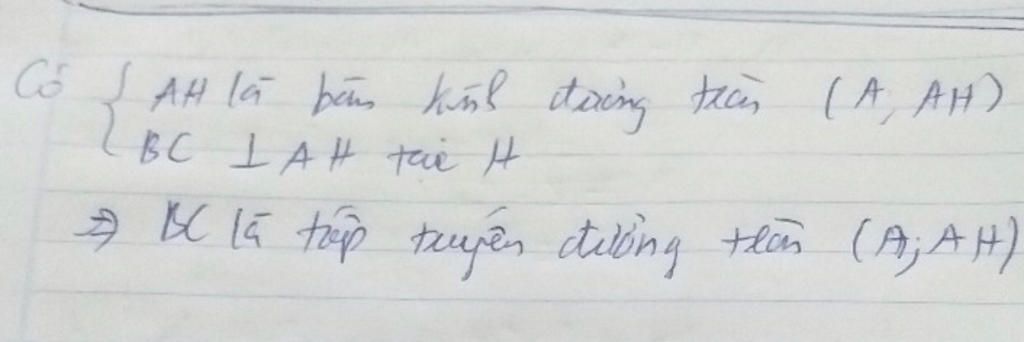 Có { AH là bán kính đường tròn (A, AH)
BC ⊥ AH tại H
⇒ BC là tiếp tuyến đường tròn (A; AH)